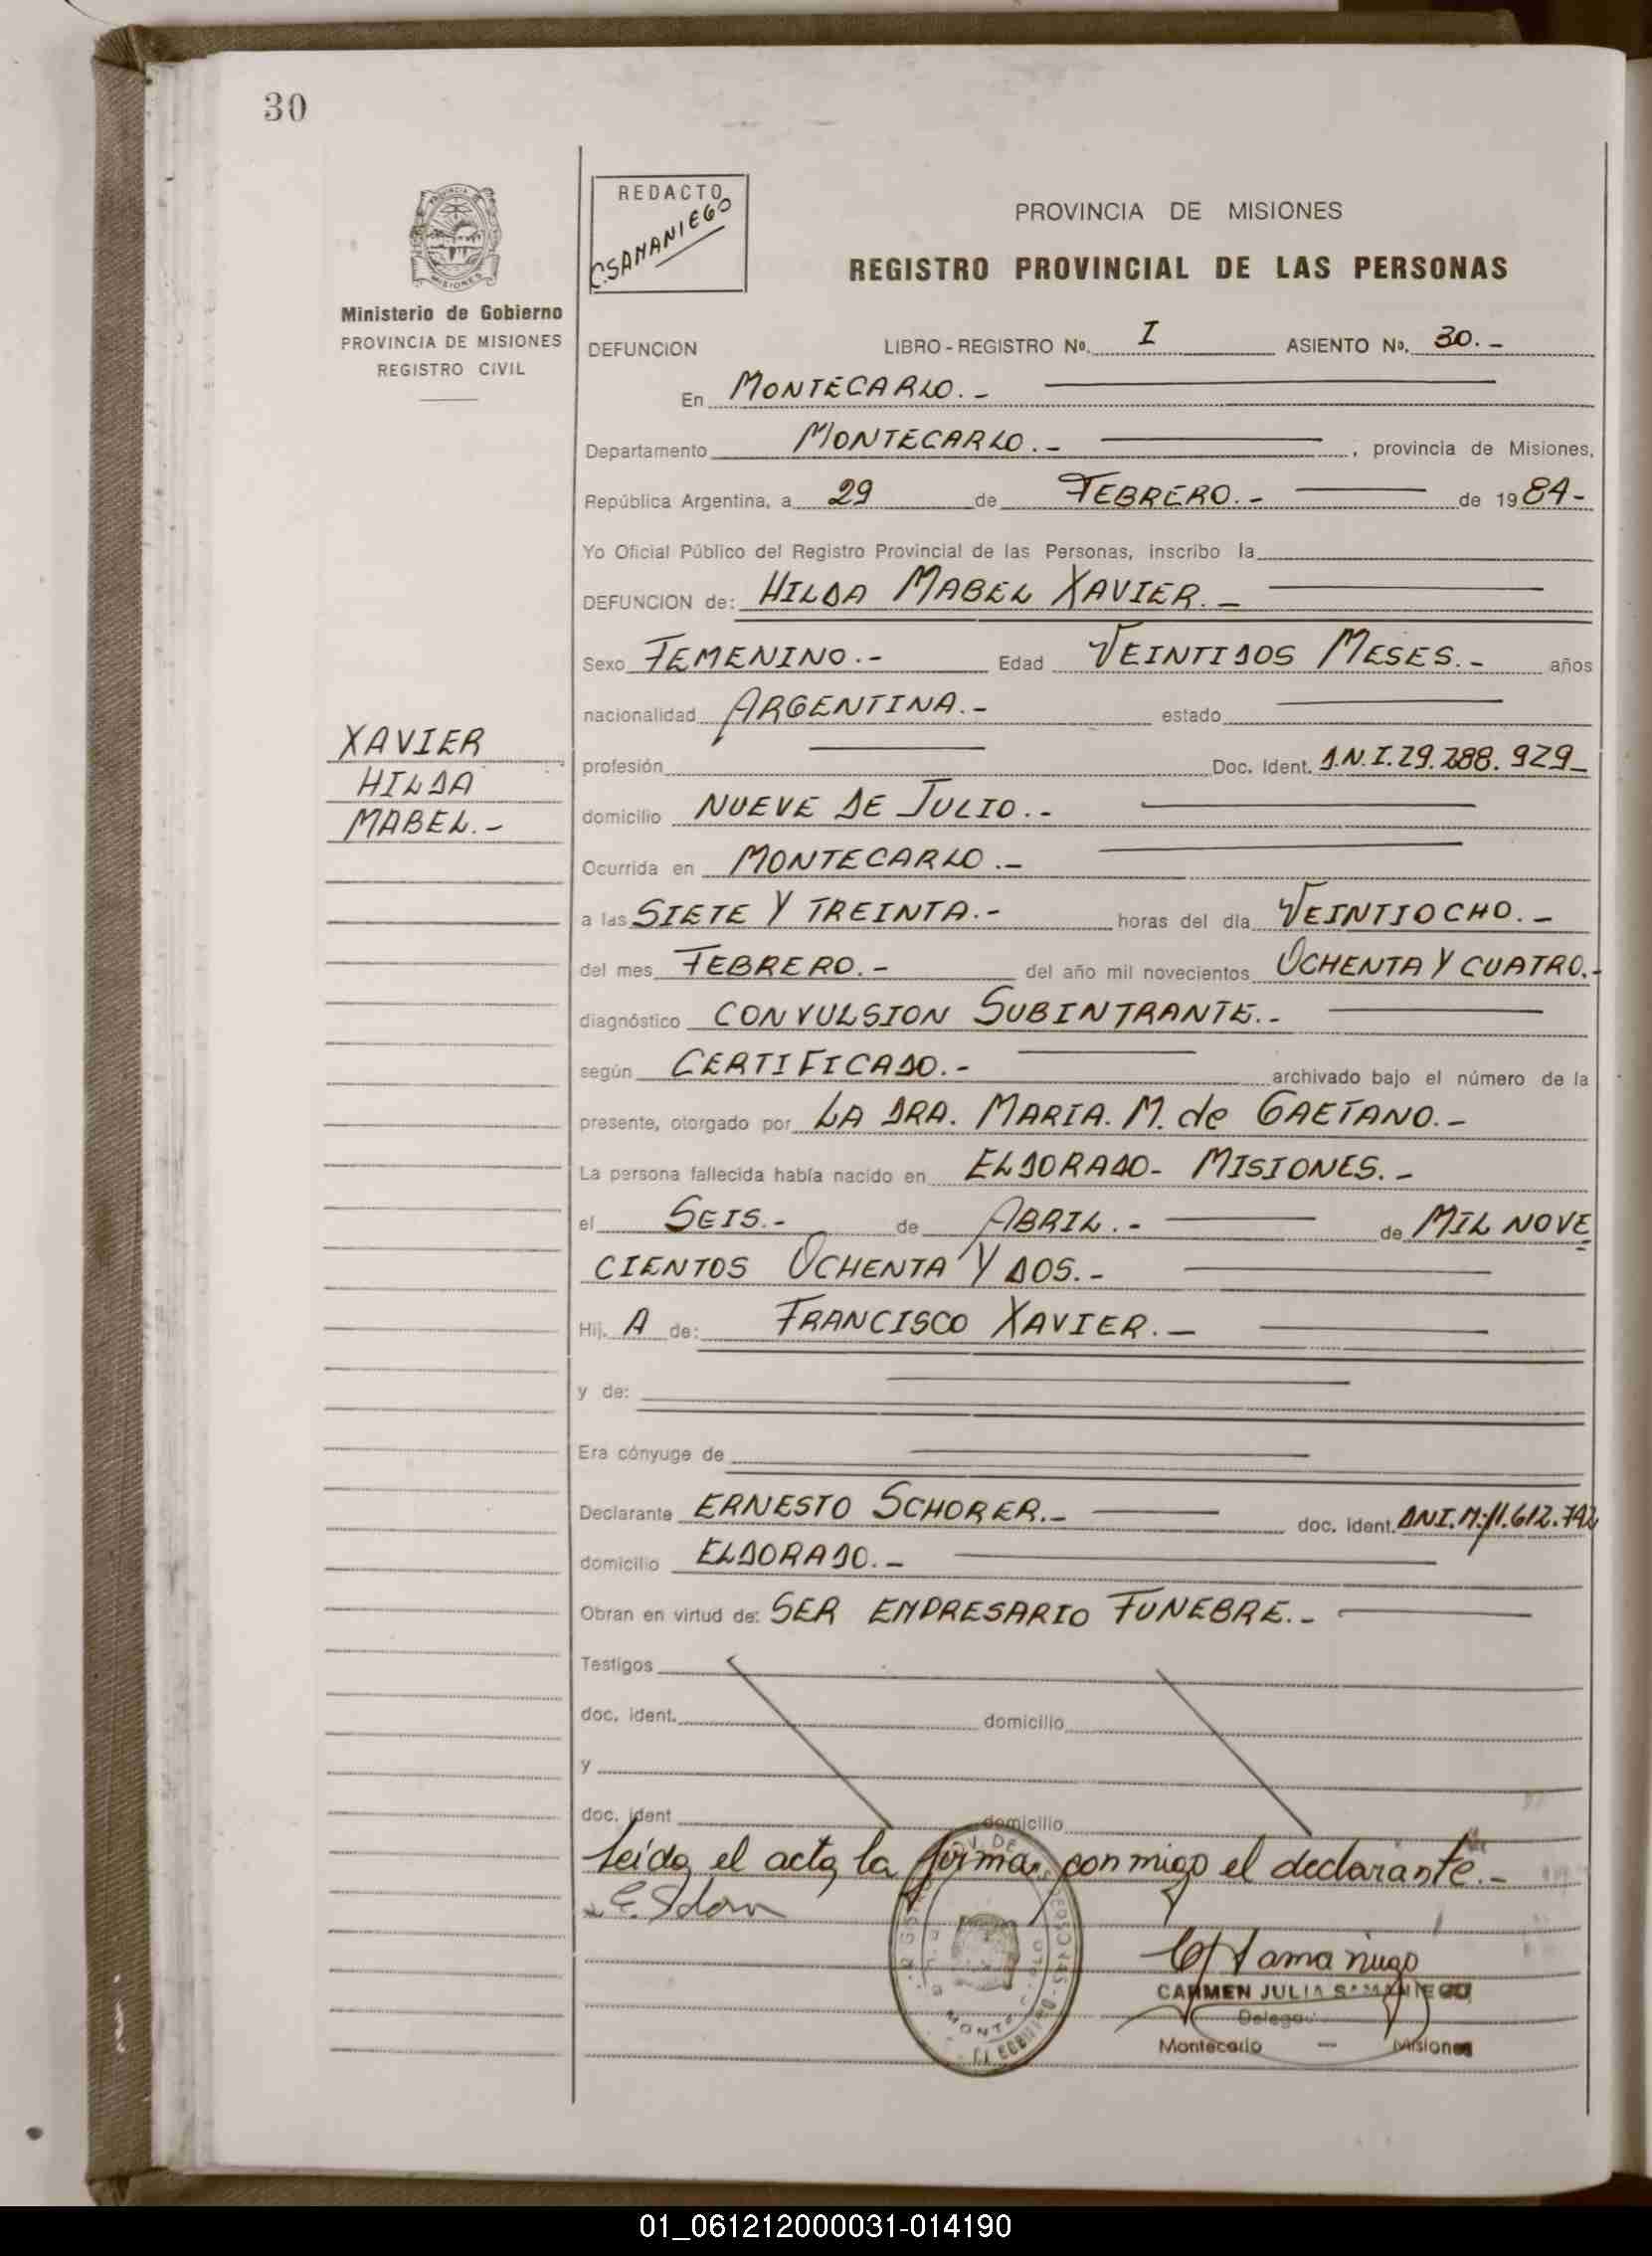 30
REDACTO
C. SAMANIEGO
PROVINCIA DE MISIONES
REGISTRO PROVINCIAL DE LAS PERSONAS
Ministerio de Gobierno
PROVINCIA DE MISIONES
REGISTRO CIVIL
DEFUNCION LIBRO - REGISTRO Nº. I ASIENTO Nº. 30.-
En MONTECARLO.-
Departamento MONTECARLO.- , provincia de Misiones,
República Argentina, a 29 de FEBRERO.- de 1984-
Yo Oficial Público del Registro Provincial de las Personas, inscribo la
DEFUNCION de: HILDA MABEL XAVIER.-
Sexo FEMENINO.- Edad VEINTIDOS MESES.- años
nacionalidad ARGENTINA.- estado
XAVIER
HILDA
MABEL.-
profesión Doc. Ident. D.N.I. 29.288.929-
domicilio NUEVE DE JULIO.-
Ocurrida en MONTECARLO.-
a las SIETE Y TREINTA.- horas del día VEINTIOCHO.-
del mes FEBRERO.- del año mil novecientos OCHENTA Y CUATRO.-
diagnóstico CONVULSION SUBINTRANTE.-
según CERTIFICADO.- archivado bajo el número de la
presente, otorgado por LA DRA. MARIA. M. de GAETANO.-
La persona fallecida había nacido en ELDORADO- MISIONES.-
el SEIS.- de ABRIL.- de MIL NOVE
CIENTOS OCHENTA Y DOS.-
Hij. A de: FRANCISCO XAVIER.-
y de:
Era cónyuge de
Declarante ERNESTO SCHORER.- doc. ident. DNI. M: 11.612.742
domicilio ELDORADO.-
Obran en virtud de: SER EMPRESARIO FUNEBRE.-
Testigos
doc. ident. domicilio
y
doc. ident domicilio
Leida el acta, la firma conmigo el declarante.-
CARMEN JULIA SAMANIEGO
Delegada
Montecarlo — Misiones
01_061212000031-014190